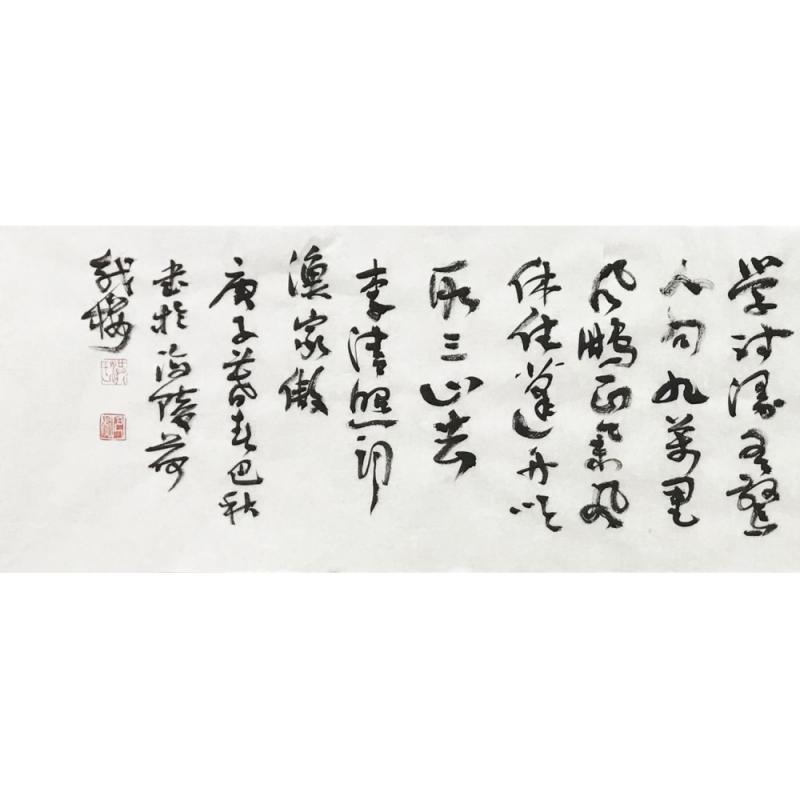 学诗漫有惊
人句九万里
风鹏正举风
休住蓬舟吹
取三山去
李清照词
渔家傲
庚子暮春巴秋
书于海陵荷